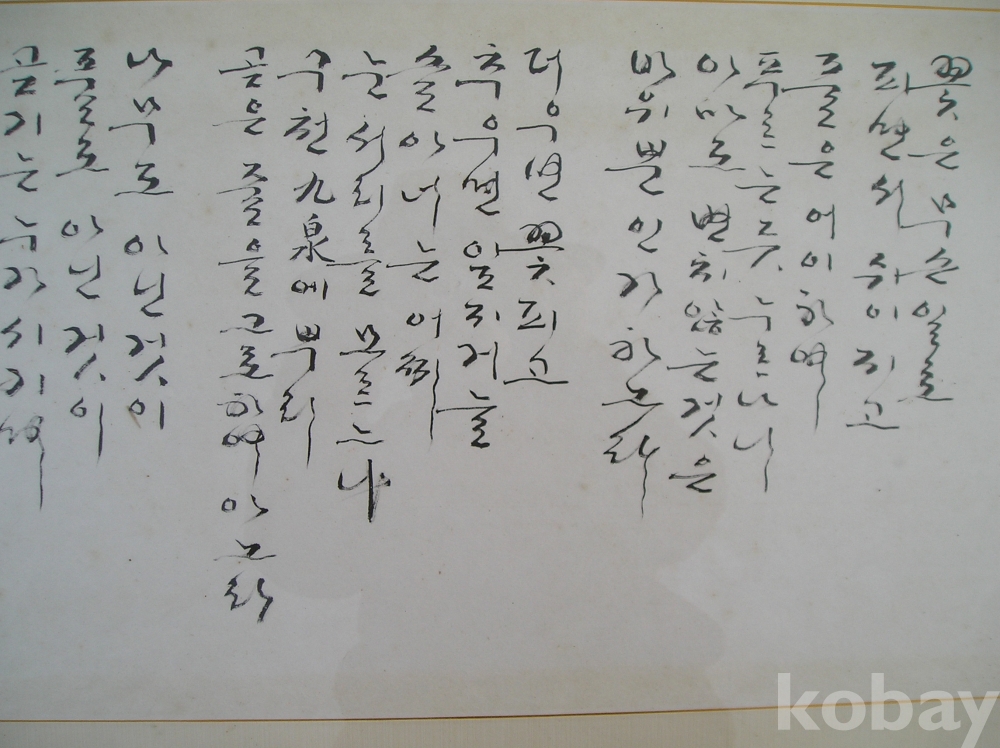 꽃은 무슨 일로
피면서 쉬이 지고
풀은 어이하여
푸르는 듯 누르나니
아마도 변치 않는 것은
바위뿐인가 하노라
더우면 꽃 피고
추우면 잎 지거늘
솔아 너는 어찌
눈서리를 모르는다
구천 九泉에 뿌리
곧은 줄을 그로 하여 아노라
나무도 아닌 것이
풀도 아닌 것이
곧기는 누가 시기며
kobay